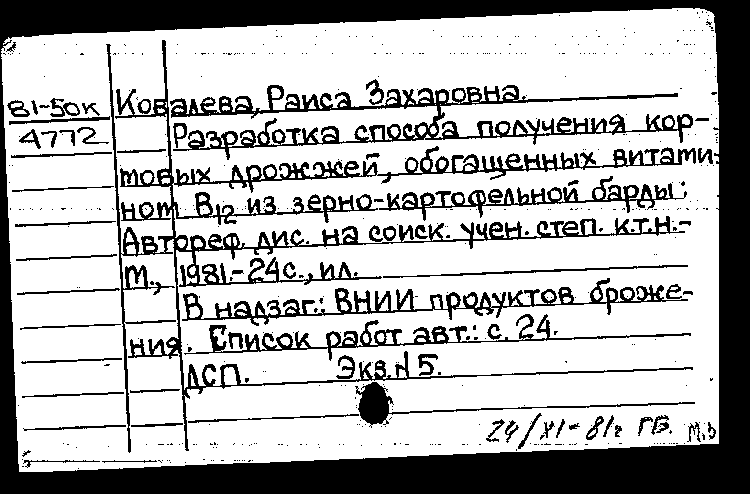 81-50к Ковалева, Раиса Захаровна.
4772 Разработка способа получения кор-
мовых дрожжей, обогащенных витами-
ном B₁₂ из зерно-картофельной барды:
Автореф. дис. на соиск. учен. степ. к.т.н.-
М., 1981.-24с., ил.
В надзаг.: ВНИИ продуктов броже-
ния. Список работ авт.: с. 24.
ДСП. Экз. № 5.
24/XI-81г ГБ. М.З